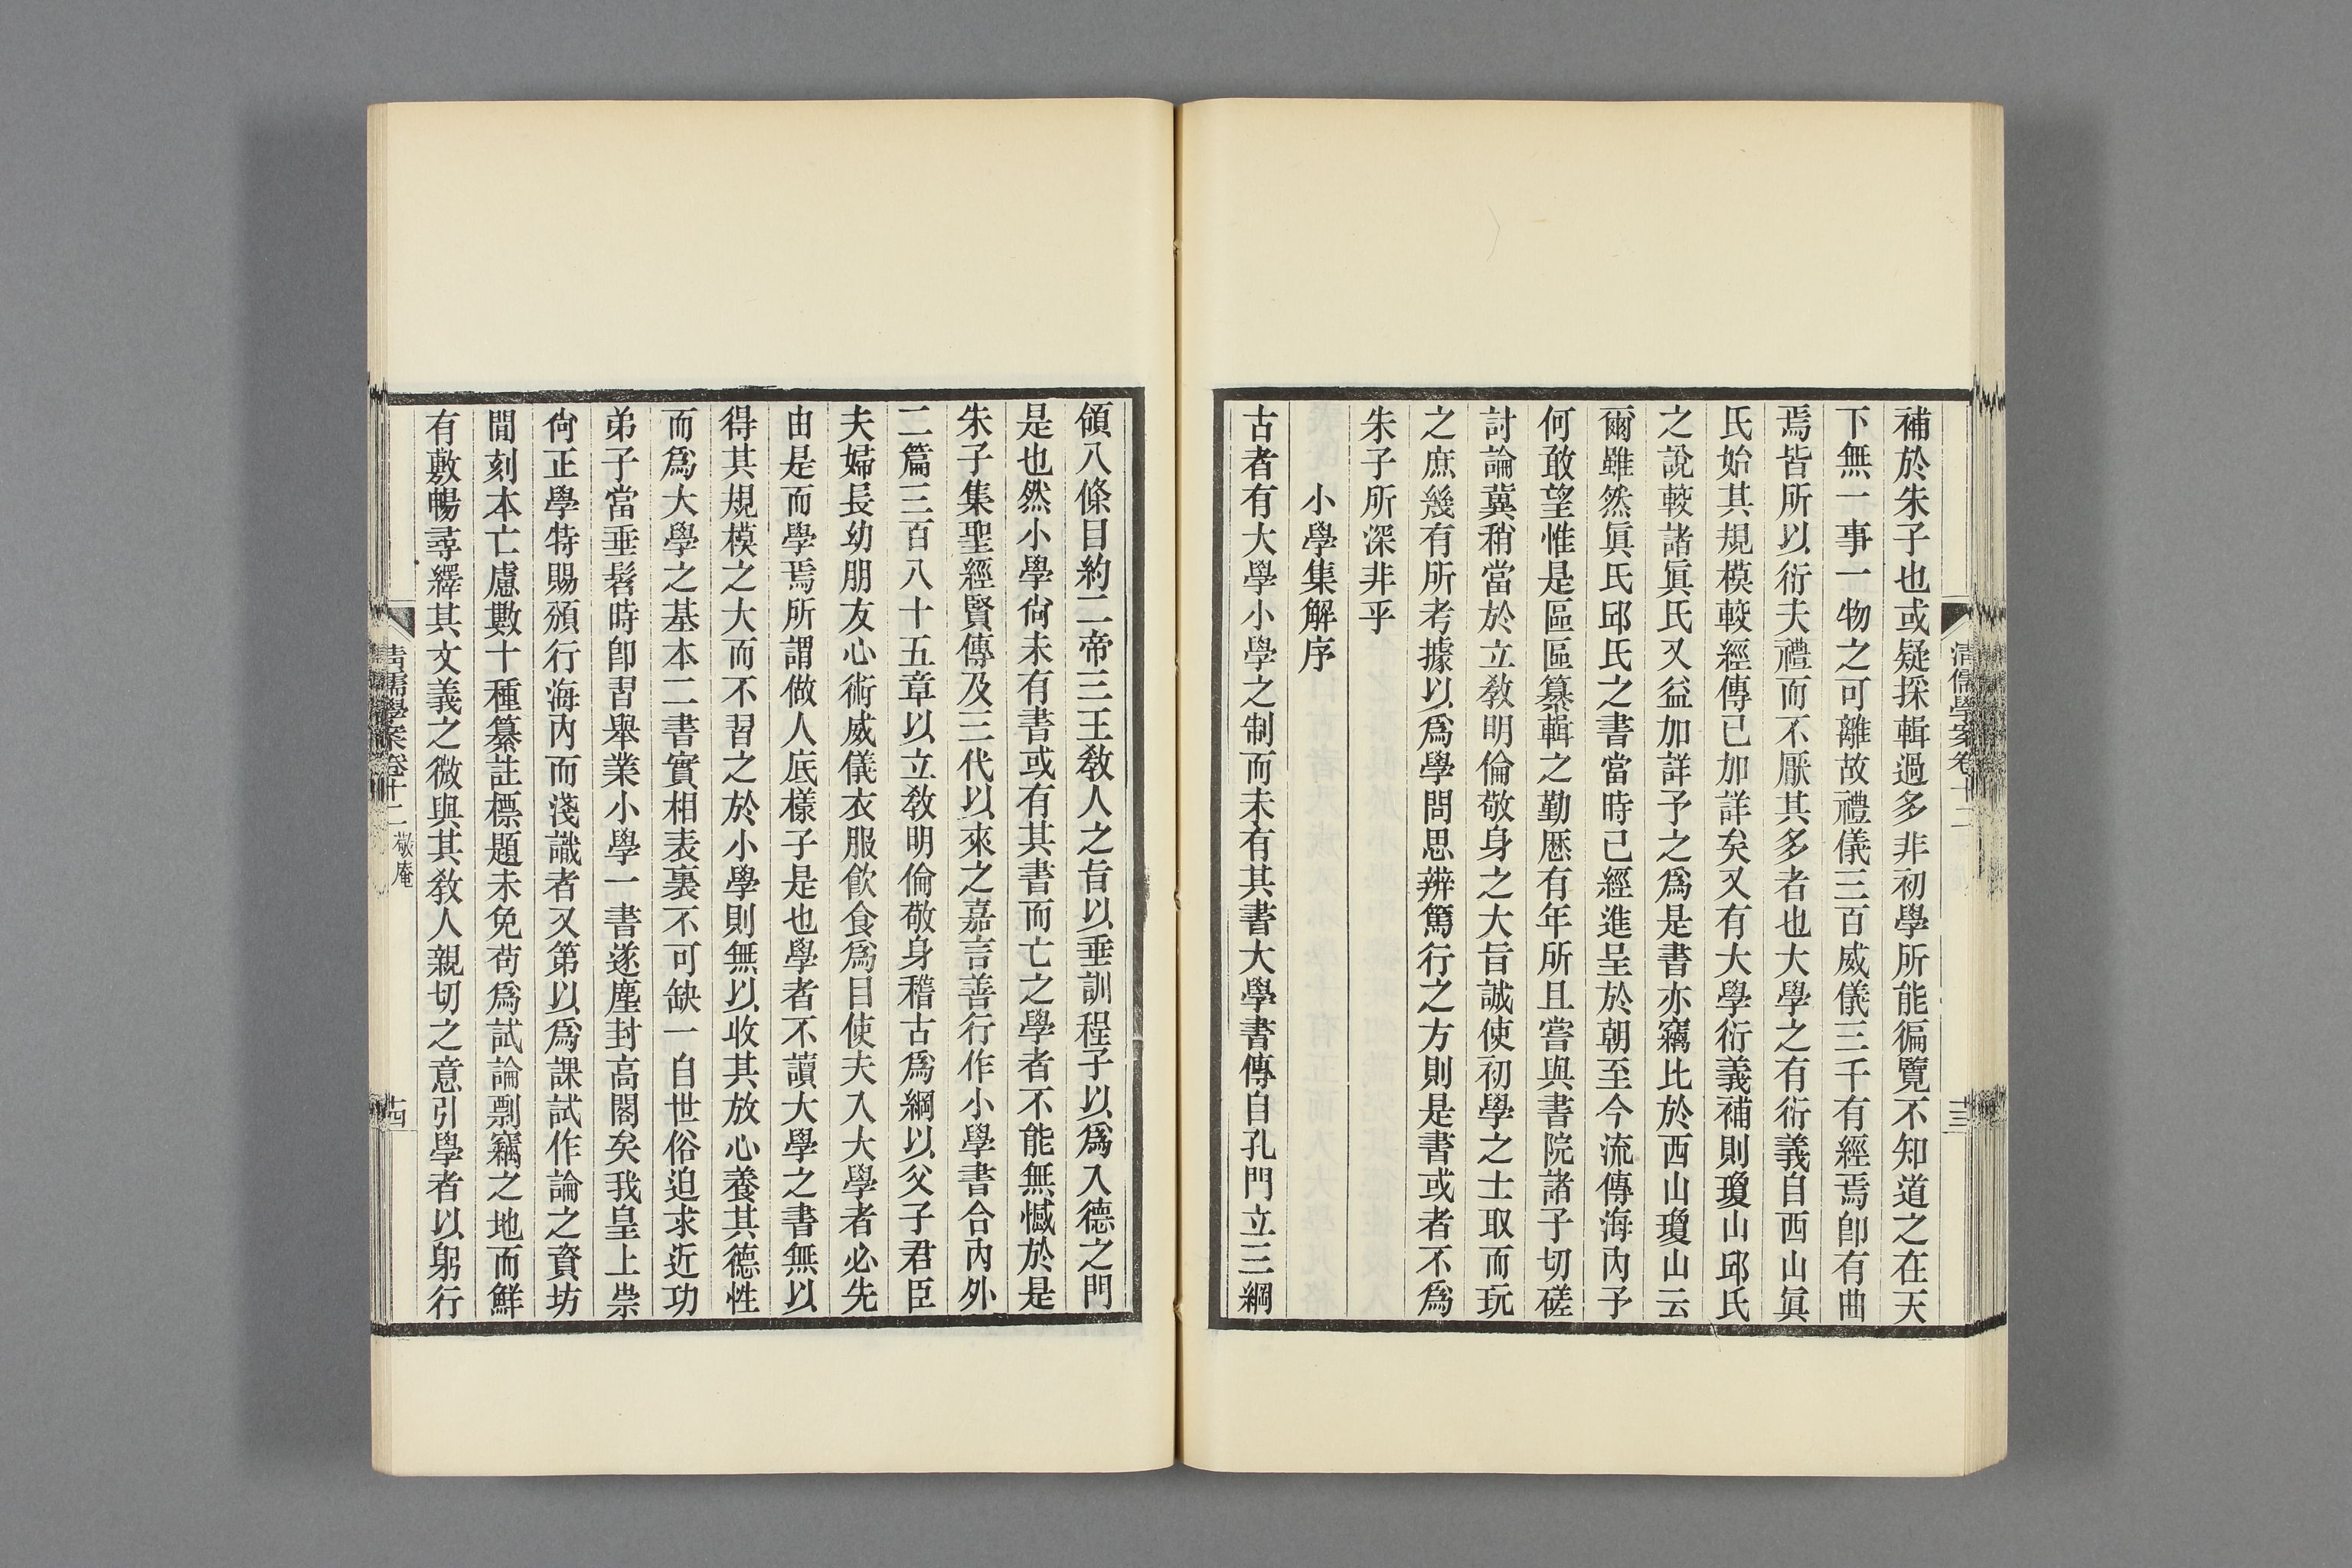 清儒學案卷十二
十三
補於朱子也或疑採輯過多非初學所能徧覽不知道之在天
下無一事一物之可離故禮儀三百威儀三千有經焉卽有曲
焉皆所以衍夫禮而不厭其多者也大學之有衍義自西山眞
氏始其規模較經傳已加詳矣又有大學衍義補則瓊山邱氏
之說較諸眞氏又益加詳予之爲是書亦竊比於西山瓊山云
爾雖然眞氏邱氏之書當時已經進呈於朝至今流傳海內予
何敢望惟是區區纂輯之勤歷有年所且嘗與書院諸子切磋
討論冀稍當於立敎明倫敬身之大旨誠使初學之士取而玩
之庶幾有所考據以爲學問思辨篤行之方則是書或者不爲
朱子所深非乎
小學集解序
古者有大學小學之制而未有其書大學書傳自孔門立三綱
領八條目約二帝三王敎人之旨以垂訓程子以爲入德之門
是也然小學尙未有書或有其書而亡之學者不能無憾於是
朱子集聖經賢傳及三代以來之嘉言善行作小學書合內外
二篇三百八十五章以立敎明倫敬身稽古爲綱以父子君臣
夫婦長幼朋友心術威儀衣服飮食爲目使夫入大學者必先
由是而學焉所謂做人底樣子是也學者不讀大學之書無以
得其規模之大而不習之於小學則無以收其放心養其德性
而爲大學之基本二書實相表裏不可缺一自世俗迫求近功
弟子當垂髫時卽習舉業小學一書遂塵封高閣矣我皇上崇
尙正學特賜頒行海內而淺識者又第以爲課試作論之資坊
閒刻本亡慮數十種纂註標題未免苟爲試論剽竊之地而鮮
有敷暢尋繹其文義之微與其敎人親切之意引學者以躬行
清儒學案卷十二 敬庵
十四